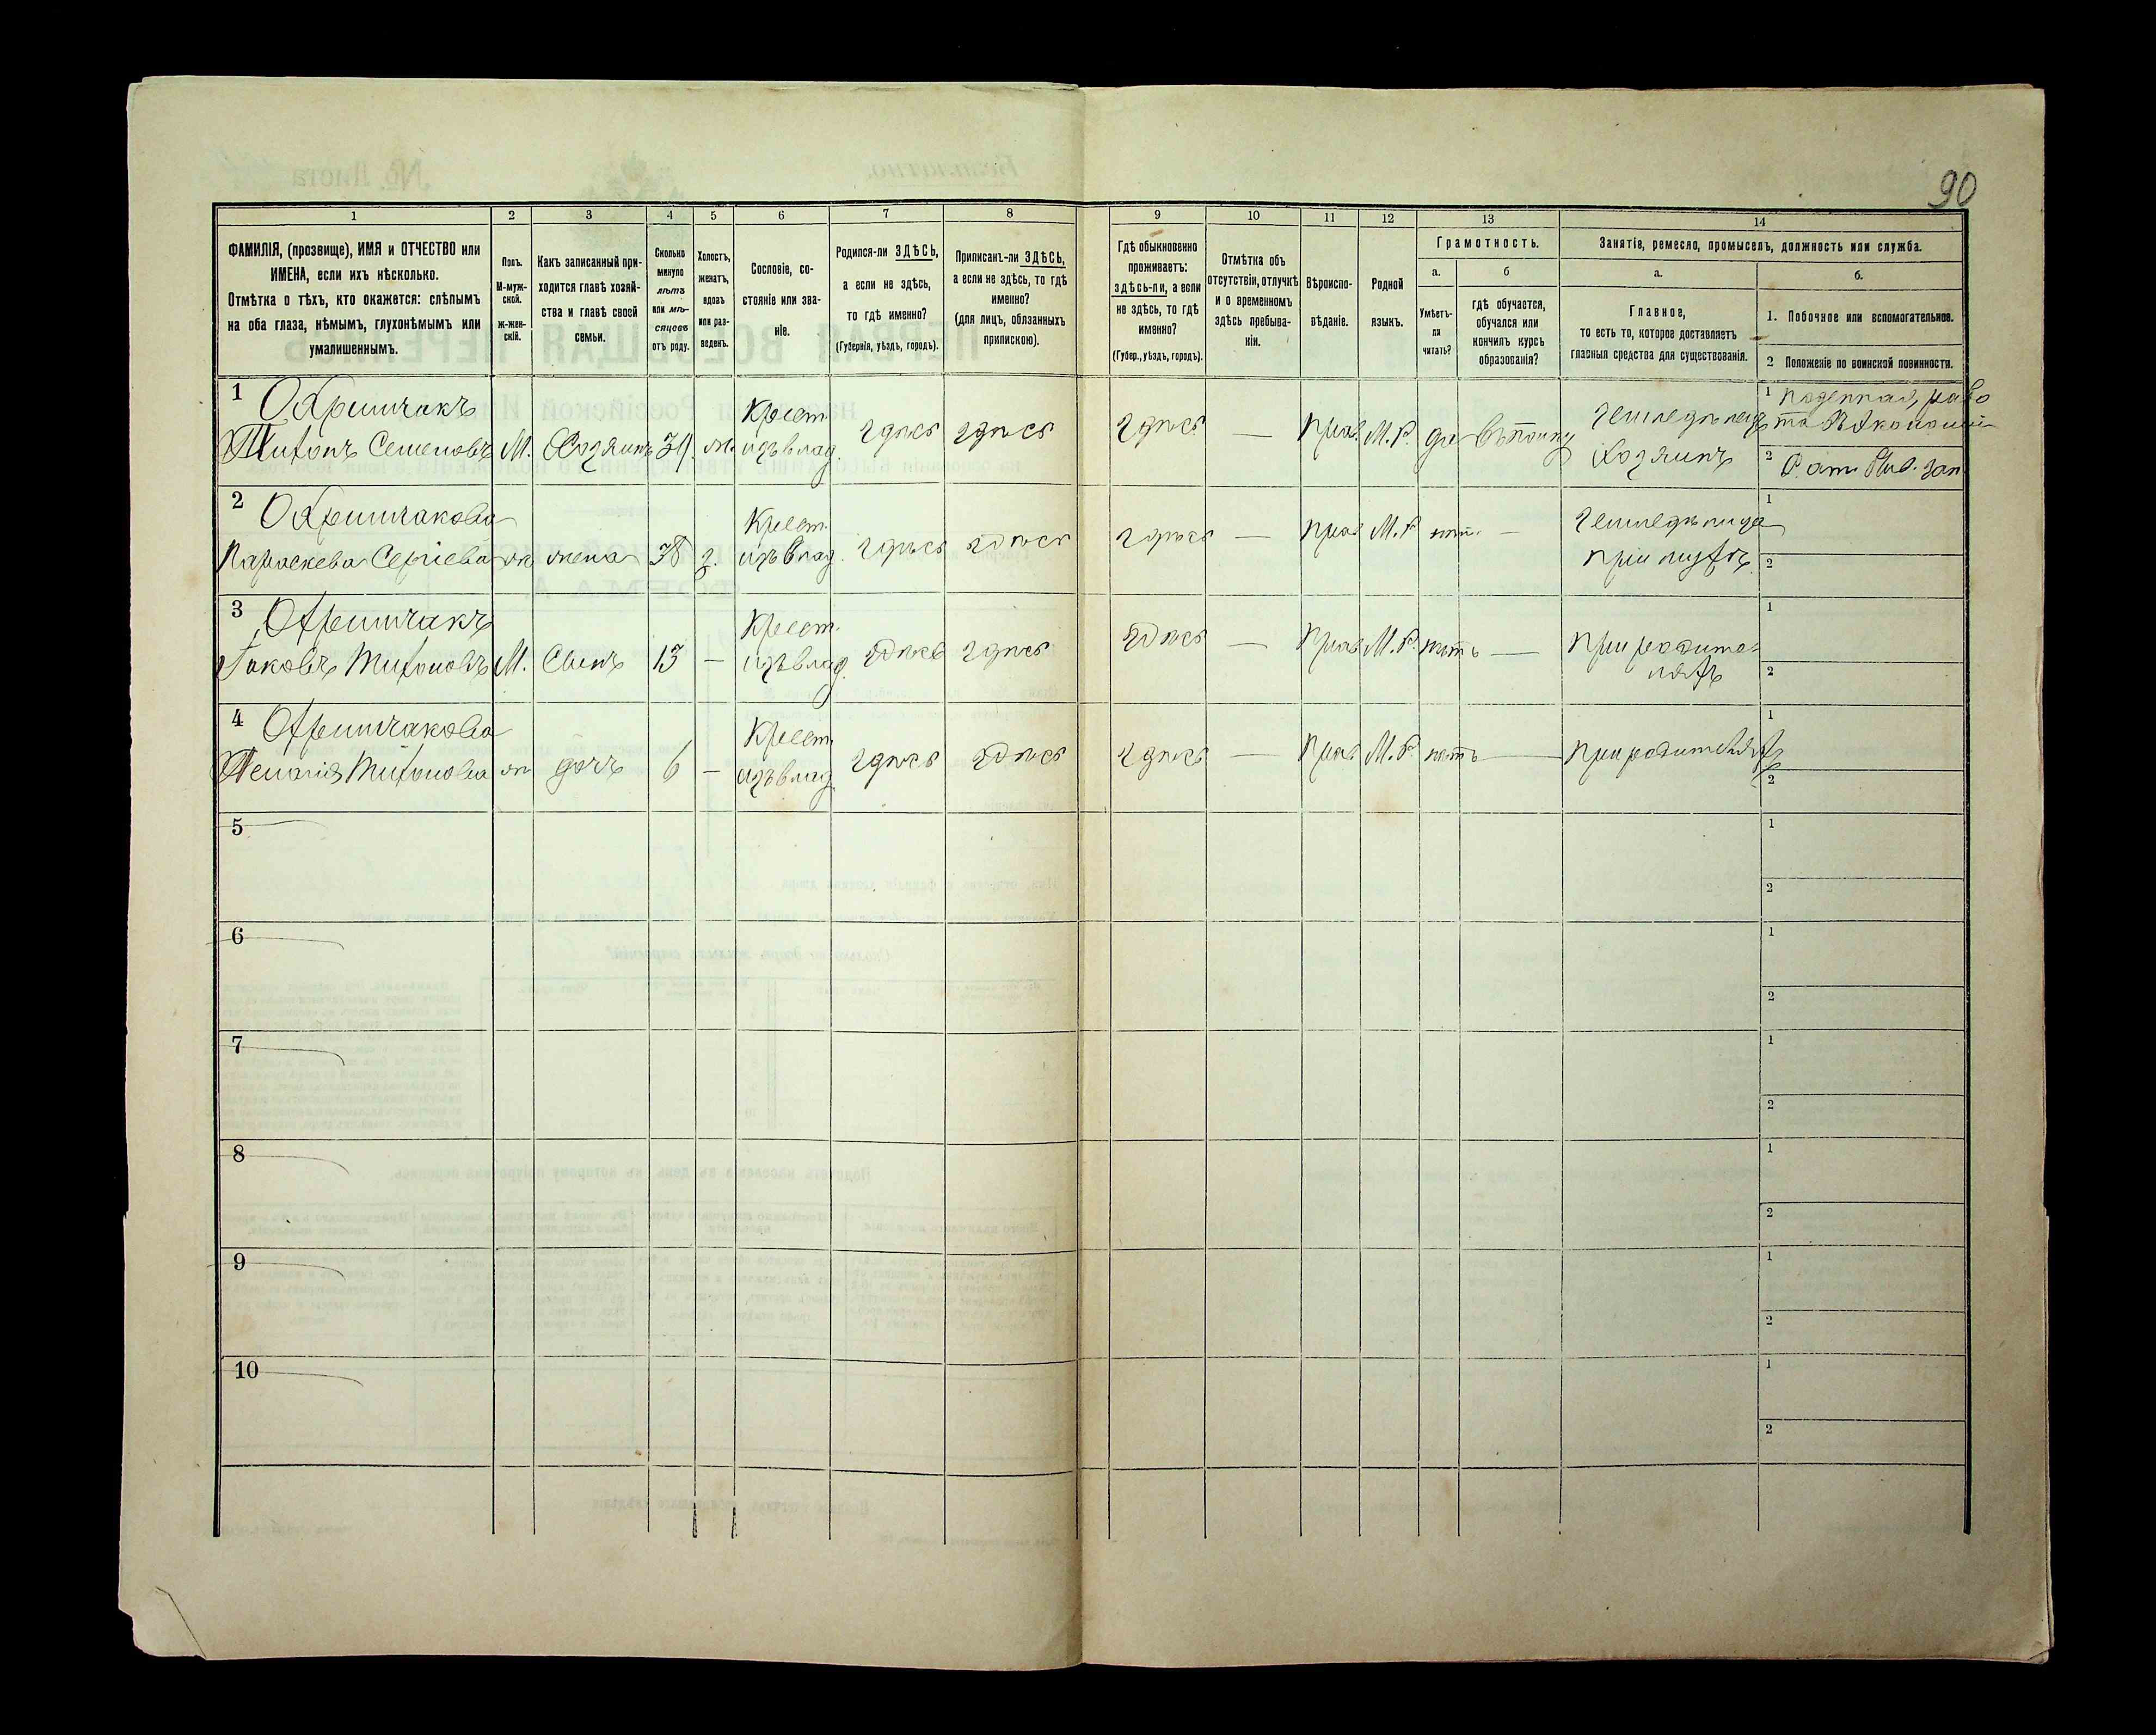 90
1 2 3 4 5 6 7 8 9 10 11 12 13 14
ФАМИЛІЯ, (прозвище), ИМЯ и ОТЧЕСТВО или
ИМЕНА, если ихъ нѣсколько.
Отмѣтка о тѣхъ, кто окажется: слѣпымъ
на оба глаза, нѣмымъ, глухонѣмымъ или
умалишеннымъ.
Полъ.
М-муж-
ской.
ж-жен-
скій.
Какъ записанный при-
ходится главѣ хозяй-
ства и главѣ своей
семьи.
Сколько
минуло
лѣтъ
или мѣ-
сяцовъ
отъ роду.
Холостъ,
женатъ,
вдовъ
или раз-
веденъ.
Сословіе, со-
стояніе или зва-
ніе.
Родился-ли ЗДѢСЬ,
а если не здѣсь,
то гдѣ именно?
(Губернія, уѣздъ, городъ).
Приписанъ-ли ЗДѢСЬ,
а если не здѣсь, то гдѣ
именно?
(для лицъ, обязанныхъ
припискою).
Гдѣ обыкновенно
проживаетъ:
здѣсь-ли, а если
не здѣсь, то гдѣ
именно?
(Губер., уѣздъ, городъ).
Отмѣтка объ
отсутствіи, отлучкѣ
и о временномъ
здѣсь пребыва-
ніи.
Вѣроиспо-
вѣданіе.
Родной
языкъ.
Грамотность.
а.
Умѣетъ-
ли
читать?
б
гдѣ обучается,
обучался или
кончилъ курсъ
образованія?
Занятія, ремесло, промыселъ, должность или служба.
а.
Главное,
то есть то, которое доставляетъ
главныя средства для существованія.
б.
1. Побочное или вспомогательное.
2 Положеніе по воинской повинности.
1
Тихонъ Семеновъ М. Хозяинъ 39 ж.
Крест.
изъ влад.
здѣсь здѣсь здѣсь — Прав. М.Р. да
Хозяинъ
1 поденная рабо
2
2
Параскева Сергіева ж жена 38 з.
Крест.
изъ влад.
здѣсь здѣсь здѣсь — Прав М.Р нѣтъ —
при мужѣ
1
2
3
Яковъ Тихоновъ М. Сынъ 13 —
Крест.
изъ влад.
здѣсь здѣсь здѣсь — Прав М.Р. нѣтъ —
При родите-
ляхъ
1
2
4
Тихонова ж дочь 6 —
Крест.
изъ влад
здѣсь здѣсь здѣсь — Прав М.Р. нѣтъ —
При родителяхъ
1
2
5
1
2
6
1
2
7
1
2
8
1
2
9
1
2
10
1
2